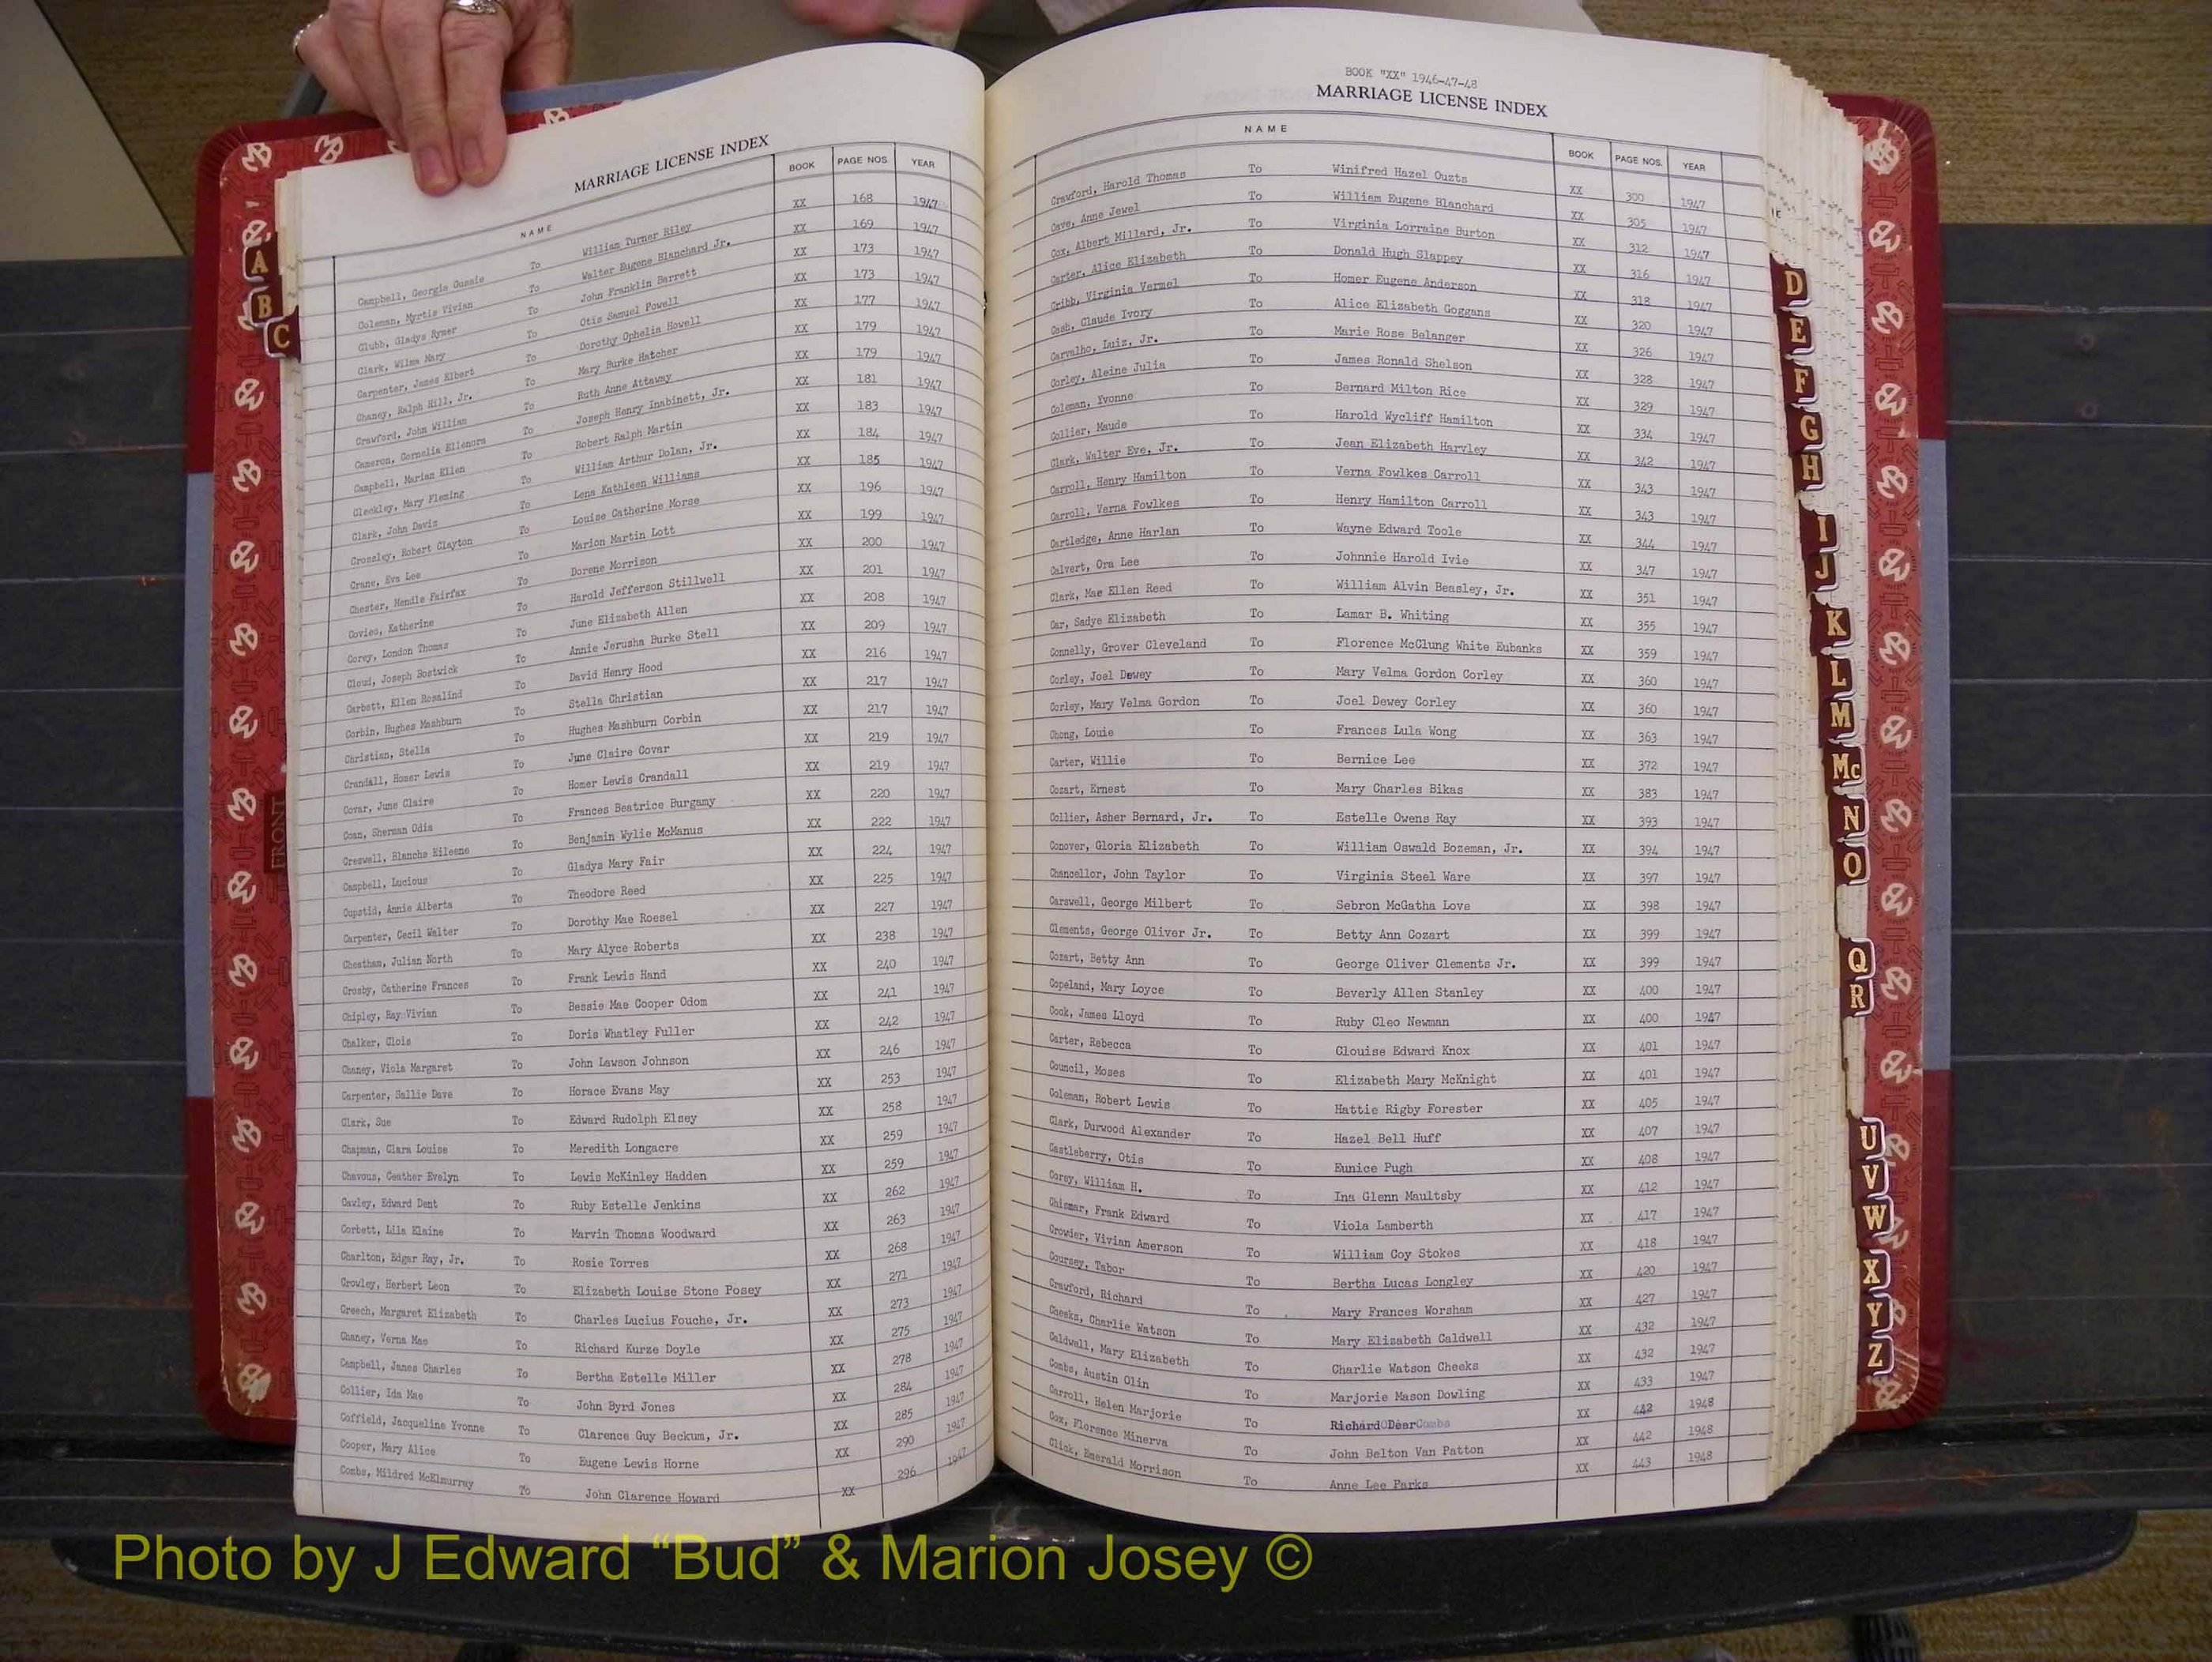 MARRIAGE LICENSE INDEX
NAME BOOK PAGE NOS YEAR
Campbell, Georgia Gussie To William Turner Riley XX 168 1947
Coleman, Myrtis Vivian To Walter Eugene Blanchard Jr. XX 169 1947
Clubb, Gladys Rymer To John Franklin Barrett XX 173 1947
Clark, Wilma Mary To Otis Samuel Powell XX 173 1947
Carpenter, James Elbert To Dorothy Ophelia Howell XX 177 1947
Chaney, Ralph Hill, Jr. To Mary Burke Hatcher XX 179 1947
Crawford, John William To Ruth Anne Attaway XX 179 1947
Cameron, Cornelia Ellenora To Joseph Henry Inabinett, Jr. XX 181 1947
Campbell, Marian Ellen To Robert Ralph Martin XX 183 1947
Cleckley, Mary Fleming To William Arthur Dolan, Jr. XX 184 1947
Clark, John Davis To Lena Kathleen Williams XX 185 1947
Crossley, Robert Clayton To Louise Catherine Morse XX 196 1947
Crane, Eva Lee To Marion Martin Lott XX 199 1947
Chester, Mendle Fairfax To Dorene Morrison XX 200 1947
Covieo, Katherine To Harold Jefferson Stillwell XX 201 1947
Corey, London Thomas To June Elizabeth Allen XX 208 1947
Cloud, Joseph Bostwick To Annie Jerusha Burke Stell XX 209 1947
Carbett, Ellen Rosalind To David Henry Hood XX 216 1947
Corbin, Hughes Mashburn To Stella Christian XX 217 1947
Christian, Stella To Hughes Mashburn Corbin XX 217 1947
Crandall, Homer Lewis To June Claire Covar XX 219 1947
Covar, June Claire To Homer Lewis Crandall XX 219 1947
Coan, Sherman Odis To Frances Beatrice Burgamy XX 220 1947
Creswell, Blanche Eileene To Benjamin Wylie McManus XX 222 1947
Campbell, Lucious To Gladys Mary Fair XX 224 1947
Cupstid, Annie Alberta To Theodore Reed XX 225 1947
Carpenter, Cecil Walter To Dorothy Mae Roesel XX 227 1947
Cheatham, Julian North To Mary Alyce Roberts XX 238 1947
Crosby, Catherine Frances To Frank Lewis Hand XX 240 1947
Chipley, Ray Vivian To Bessie Mae Cooper Odom XX 241 1947
Chalker, Clois To Doris Whatley Fuller XX 242 1947
Chaney, Viola Margaret To John Lawson Johnson XX 246 1947
Carpenter, Sallie Dave To Horace Evans May XX 253 1947
Clark, Sue To Edward Rudolph Elsey XX 258 1947
Chapman, Clara Louise To Meredith Longacre XX 259 1947
Chavous, Ceather Evelyn To Lewis McKinley Hadden XX 259 1947
Cawley, Edward Dent To Ruby Estelle Jenkins XX 262 1947
Corbett, Lila Elaine To Marvin Thomas Woodward XX 263 1947
Charlton, Edgar Ray, Jr. To Rosie Torres XX 268 1947
Crowley, Herbert Leon To Elizabeth Louise Stone Posey XX 271 1947
Creech, Margaret Elizabeth To Charles Lucius Fouche, Jr. XX 273 1947
Chaney, Verna Mae To Richard Kurze Doyle XX 275 1947
Campbell, James Charles To Bertha Estelle Miller XX 278 1947
Collier, Ida Mae To John Byrd Jones XX 284 1947
Coffield, Jacqueline Yvonne To Clarence Guy Beckum, Jr. XX 285 1947
Cooper, Mary Alice To Eugene Lewis Horne XX 290 1947
Combs, Mildred McElmurray To John Clarence Howard XX 296 1947
A
B
C
FRONT
BOOK "XX" 1946-47-48
MARRIAGE LICENSE INDEX
NAME BOOK PAGE NOS. YEAR
Crawford, Harold Thomas To Winifred Hazel Ouzts XX 300 1947
Cave, Anne Jewel To William Eugene Blanchard XX 305 1947
Cox, Albert Millard, Jr. To Virginia Lorraine Burton XX 312 1947
Carter, Alice Elizabeth To Donald Hugh Slappey XX 316 1947
Cribb, Virginia Vermel To Homer Eugene Anderson XX 318 1947
Cash, Claude Ivory To Alice Elizabeth Goggans XX 320 1947
Carvalho, Luiz, Jr. To Marie Rose Belanger XX 326 1947
Corley, Aleine Julia To James Ronald Shelson XX 328 1947
Coleman, Yvonne To Bernard Milton Rice XX 329 1947
Collier, Maude To Harold Wycliff Hamilton XX 334 1947
Clark, Walter Eve, Jr. To Jean Elizabeth Harvley XX 342 1947
Carroll, Henry Hamilton To Verna Fowlkes Carroll XX 343 1947
Carroll, Verna Fowlkes To Henry Hamilton Carroll XX 343 1947
Cartledge, Anne Harlan To Wayne Edward Toole XX 344 1947
Calvert, Ora Lee To Johnnie Harold Ivie XX 347 1947
Clark, Mae Ellen Reed To William Alvin Beasley, Jr. XX 351 1947
Car, Sadye Elizabeth To Lamar B. Whiting XX 355 1947
Connelly, Grover Cleveland To Florence McClung White Eubanks XX 359 1947
Corley, Joel Dewey To Mary Velma Gordon Corley XX 360 1947
Corley, Mary Velma Gordon To Joel Dewey Corley XX 360 1947
Chong, Louie To Frances Lula Wong XX 363 1947
Carter, Willie To Bernice Lee XX 372 1947
Cozart, Ernest To Mary Charles Bikas XX 383 1947
Collier, Asher Bernard, Jr. To Estelle Owens Ray XX 393 1947
Conover, Gloria Elizabeth To William Oswald Bozeman, Jr. XX 394 1947
Chancellor, John Taylor To Virginia Steel Ware XX 397 1947
Carswell, George Milbert To Sebron McGatha Love XX 398 1947
Clements, George Oliver Jr. To Betty Ann Cozart XX 399 1947
Cozart, Betty Ann To George Oliver Clements Jr. XX 399 1947
Copeland, Mary Loyce To Beverly Allen Stanley XX 400 1947
Cook, James Lloyd To Ruby Cleo Newman XX 400 1947
Carter, Rebecca To Clouise Edward Knox XX 401 1947
Council, Moses To Elizabeth Mary McKnight XX 401 1947
Coleman, Robert Lewis To Hattie Rigby Forester XX 405 1947
Clark, Durwood Alexander To Hazel Bell Huff XX 407 1947
Castleberry, Otis To Eunice Pugh XX 408 1947
Corey, William H. To Ina Glenn Maultsby XX 412 1947
Chismar, Frank Edward To Viola Lamberth XX 417 1947
Crowder, Vivian Amerson To William Coy Stokes XX 418 1947
Coursey, Tabor To Bertha Lucas Longley XX 420 1947
Crawford, Richard To Mary Frances Worsham XX 427 1947
Cheeks, Charlie Watson To Mary Elizabeth Caldwell XX 432 1947
Caldwell, Mary Elizabeth To Charlie Watson Cheeks XX 432 1947
Combs, Austin Olin To Marjorie Mason Dowling XX 433 1947
Carroll, Helen Marjorie To Richard Deer Combs XX 442 1948
Cox, Florence Minerva To John Belton Van Patton XX 442 1948
Click, Emerald Morrison To Anne Lee Parks XX 443 1948
D
E
F
G
H
I
J
K
L
M
Mc
N
O
Q
R
U
V
W
X
Y
Z
Photo by J Edward “Bud” & Marion Josey ©